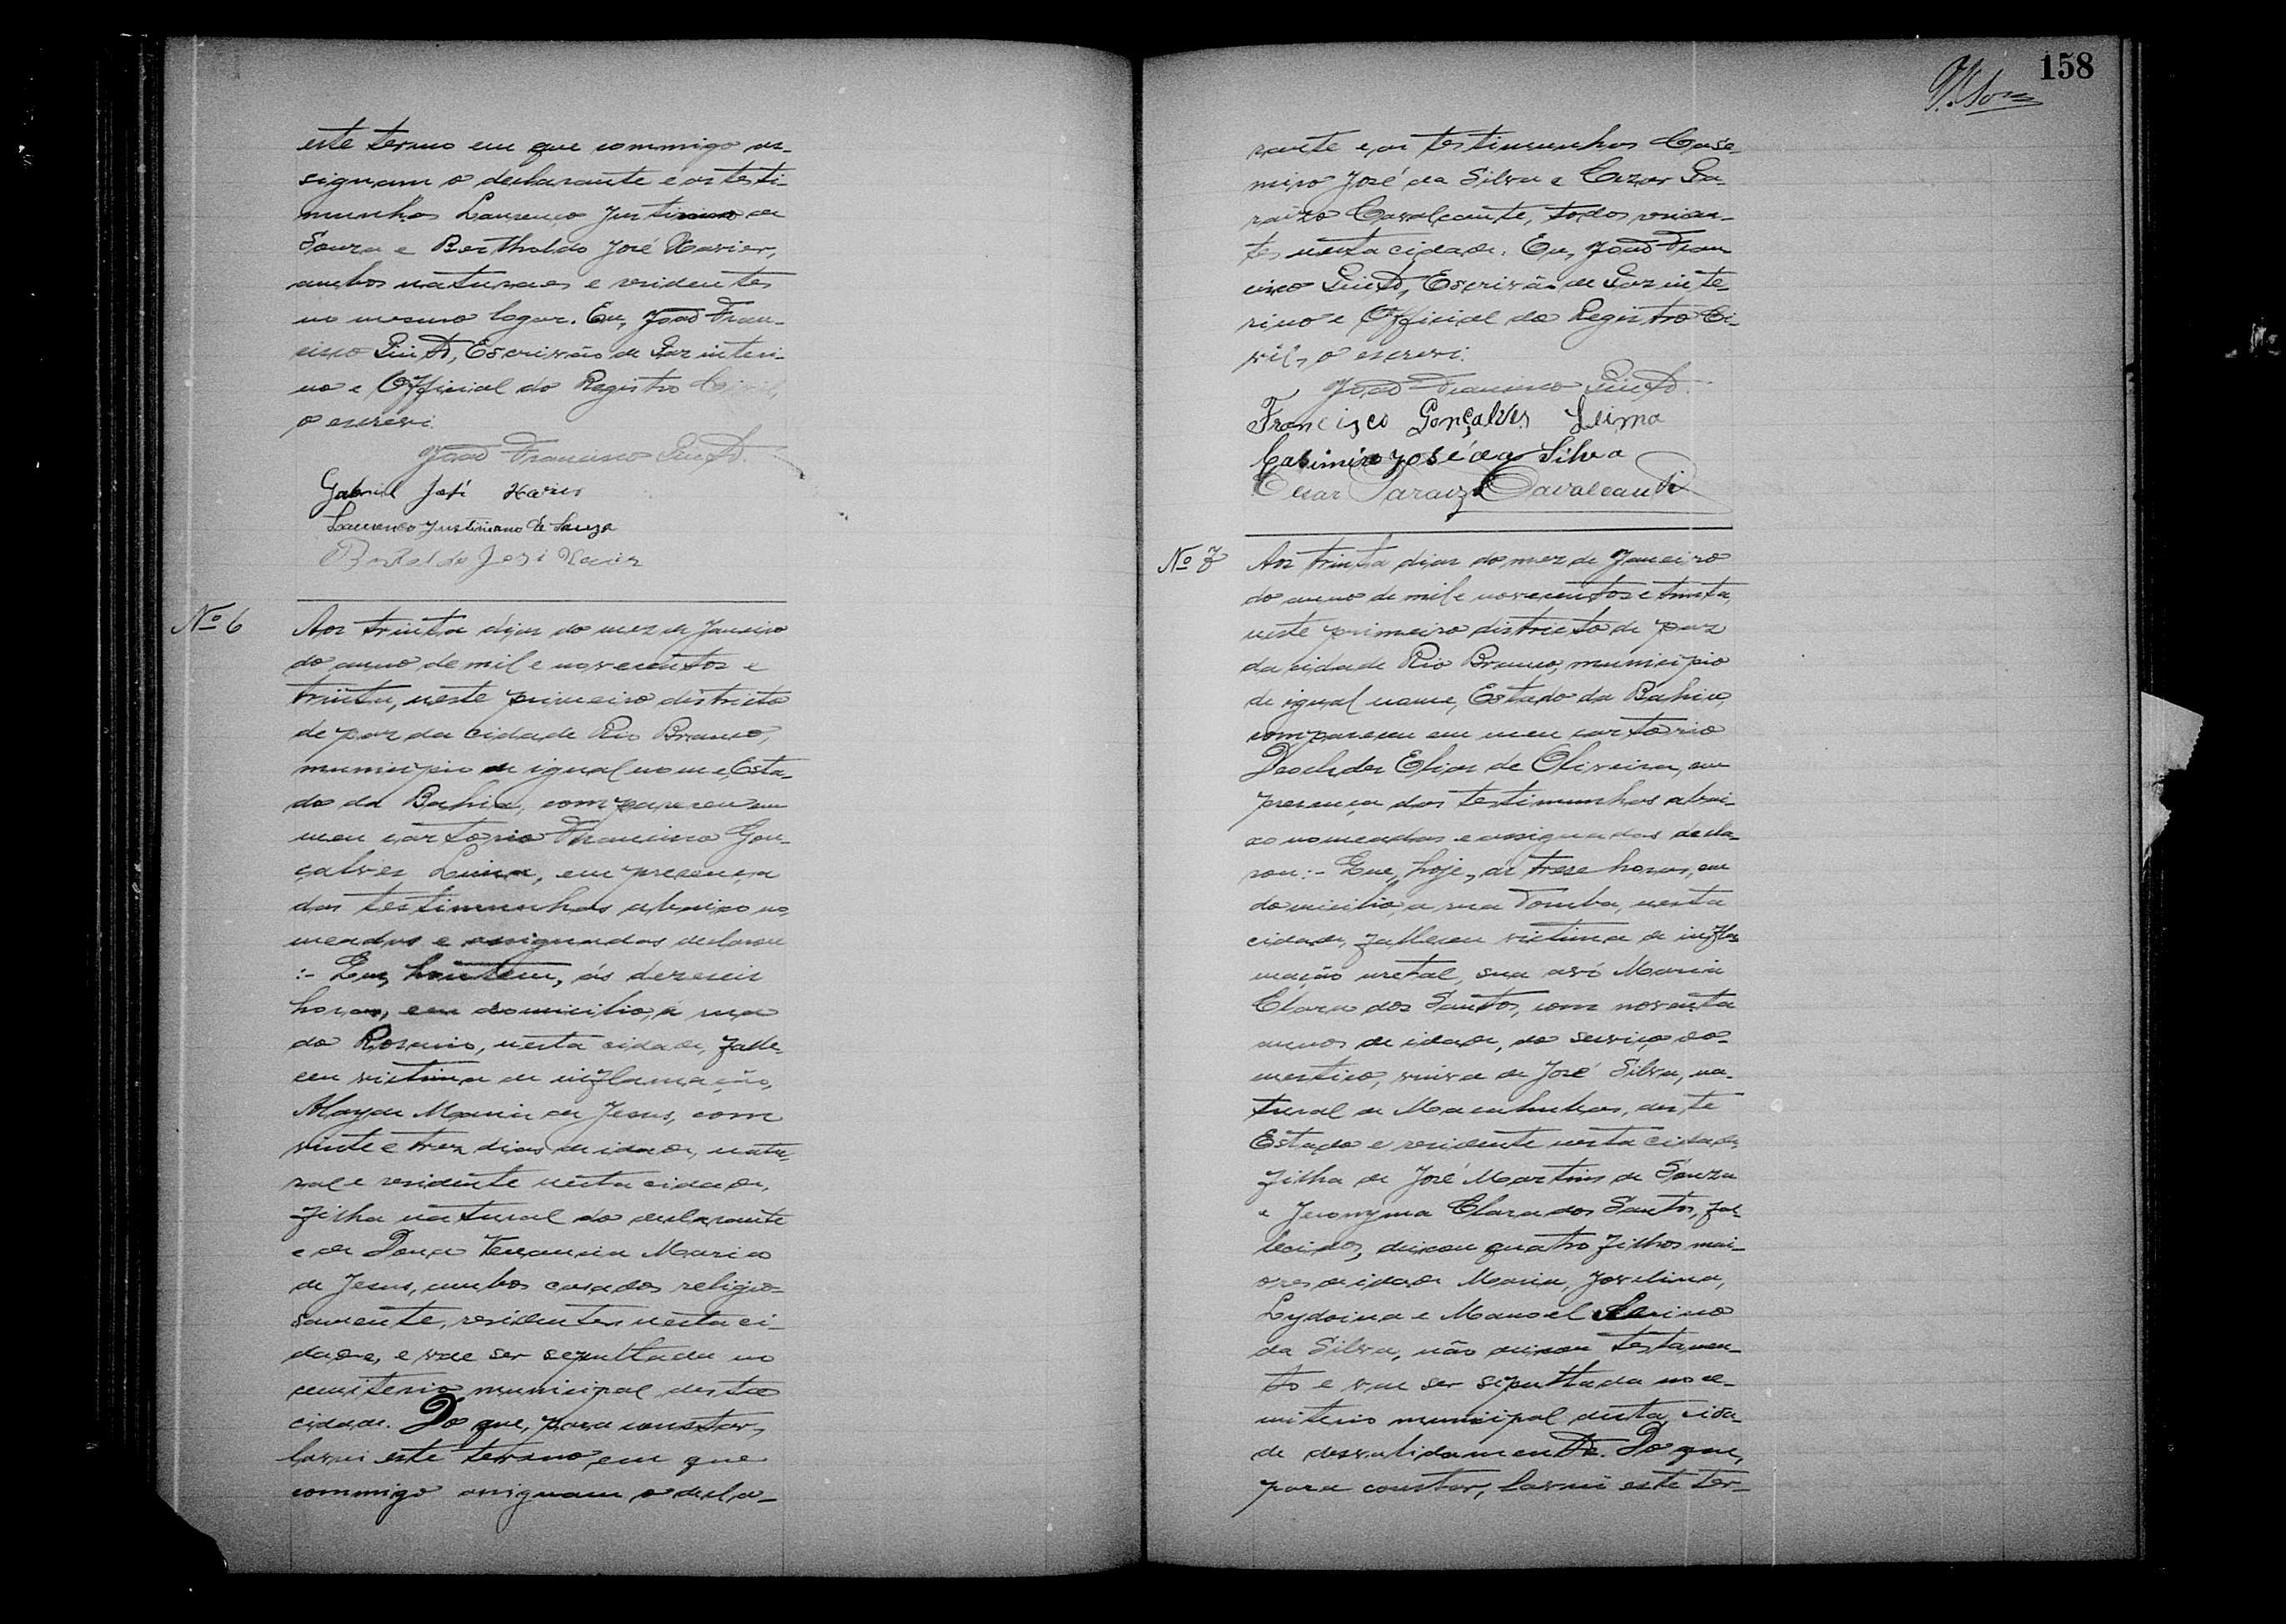 este termo em que commigo as-
signam o declarante e as teste-
munhas Laurenço Justiniano de
Souza e Bertholdo José Xavier,
ambos naturaes e residentes
no mesmo logar. Eu, João Fran-
cisco Pinto, Escrivão de Paz interi-
no e Official do Registro Civil,
o escrevi.
João Francisco Pinto.
Gabriel José Xavier
Laurenço Justiniano de Souza
Bertoldo José Xavier
Nº 6
Aos trinta dias do mez de Janeiro
do anno de mil e novecentos e
trinta, neste primeiro districto
de paz da cidade Rio Branco,
municipio de igual nome, Esta-
do da Bahia, compareceu em
meu cartorio Francisco Gon-
çalves Lima, em presença
das testimunhas abaixo no-
meadas e assignadas declarou
:- Que, hontem, ás dezeseis
horas, em domicilio, á rua
do Rosario, nesta cidade, falle-
ceu victima de inflamação,
Alayde Maria de Jesus, com
vinte e trez dias de idade, natu-
ral e residente nesta cidade,
filha natural do declarante
e de Dona Venancia Maria
de Jesus, ambos casados religio-
samente, residentes nesta ci-
dade, e vae ser sepultada no
cemiterio municipal desta
cidade. Do que, para constar,
lavrei este termo, em que
commigo assignam o decla-
158
rante e as testimunhas Case-
miro José da Silva e Cezar Pa-
raizo Cavalcante, todos residen-
tes nesta cidade. Eu, João Fran-
cisco Pinto, Escrivão de Paz inte-
rino e Official do Registro Ci-
vil, o escrevi.
João Francisco Pinto.
Francisco Gonçalves Leima
Casimiro José da Silva
Cesar Paraizo Cavalcanti
Nº 7
Aos trinta dias do mez de Janeiro
do anno de mil e novecentos e trinta,
neste primeiro districto de paz
da cidade Rio Branco, municipio
de igual nome, Estado da Bahia,
compareceu em meu cartorio
Deoclides Elias de Oliveira, em
presença das testimunhas abai-
xo nomeadas e assignadas decla-
rou:- Que, hoje, ás treze horas, em
domicilio, a rua Tomba, nesta
cidade, falleceu victima de infla-
mação uretal, sua avó Maria
Clara dos Santos, com noventa
annos de idade, do serviço do-
mestico, viuva de José Silva, na-
tural de Macahubas, deste
Estado e residente nesta cidade,
filha de José Martins de Souza
e Jeronyma Clara dos Santos, fal-
lecidos, deixou quatro filhos mai-
ores de idade Maria, Jovelina,
Lydoina e Manoel Marino
da Silva, não deixou testamen-
to e vae ser sepultada no ce-
miterio municipal desta cida-
de desvalidamente. Do que,
para constar, lavrei este ter-